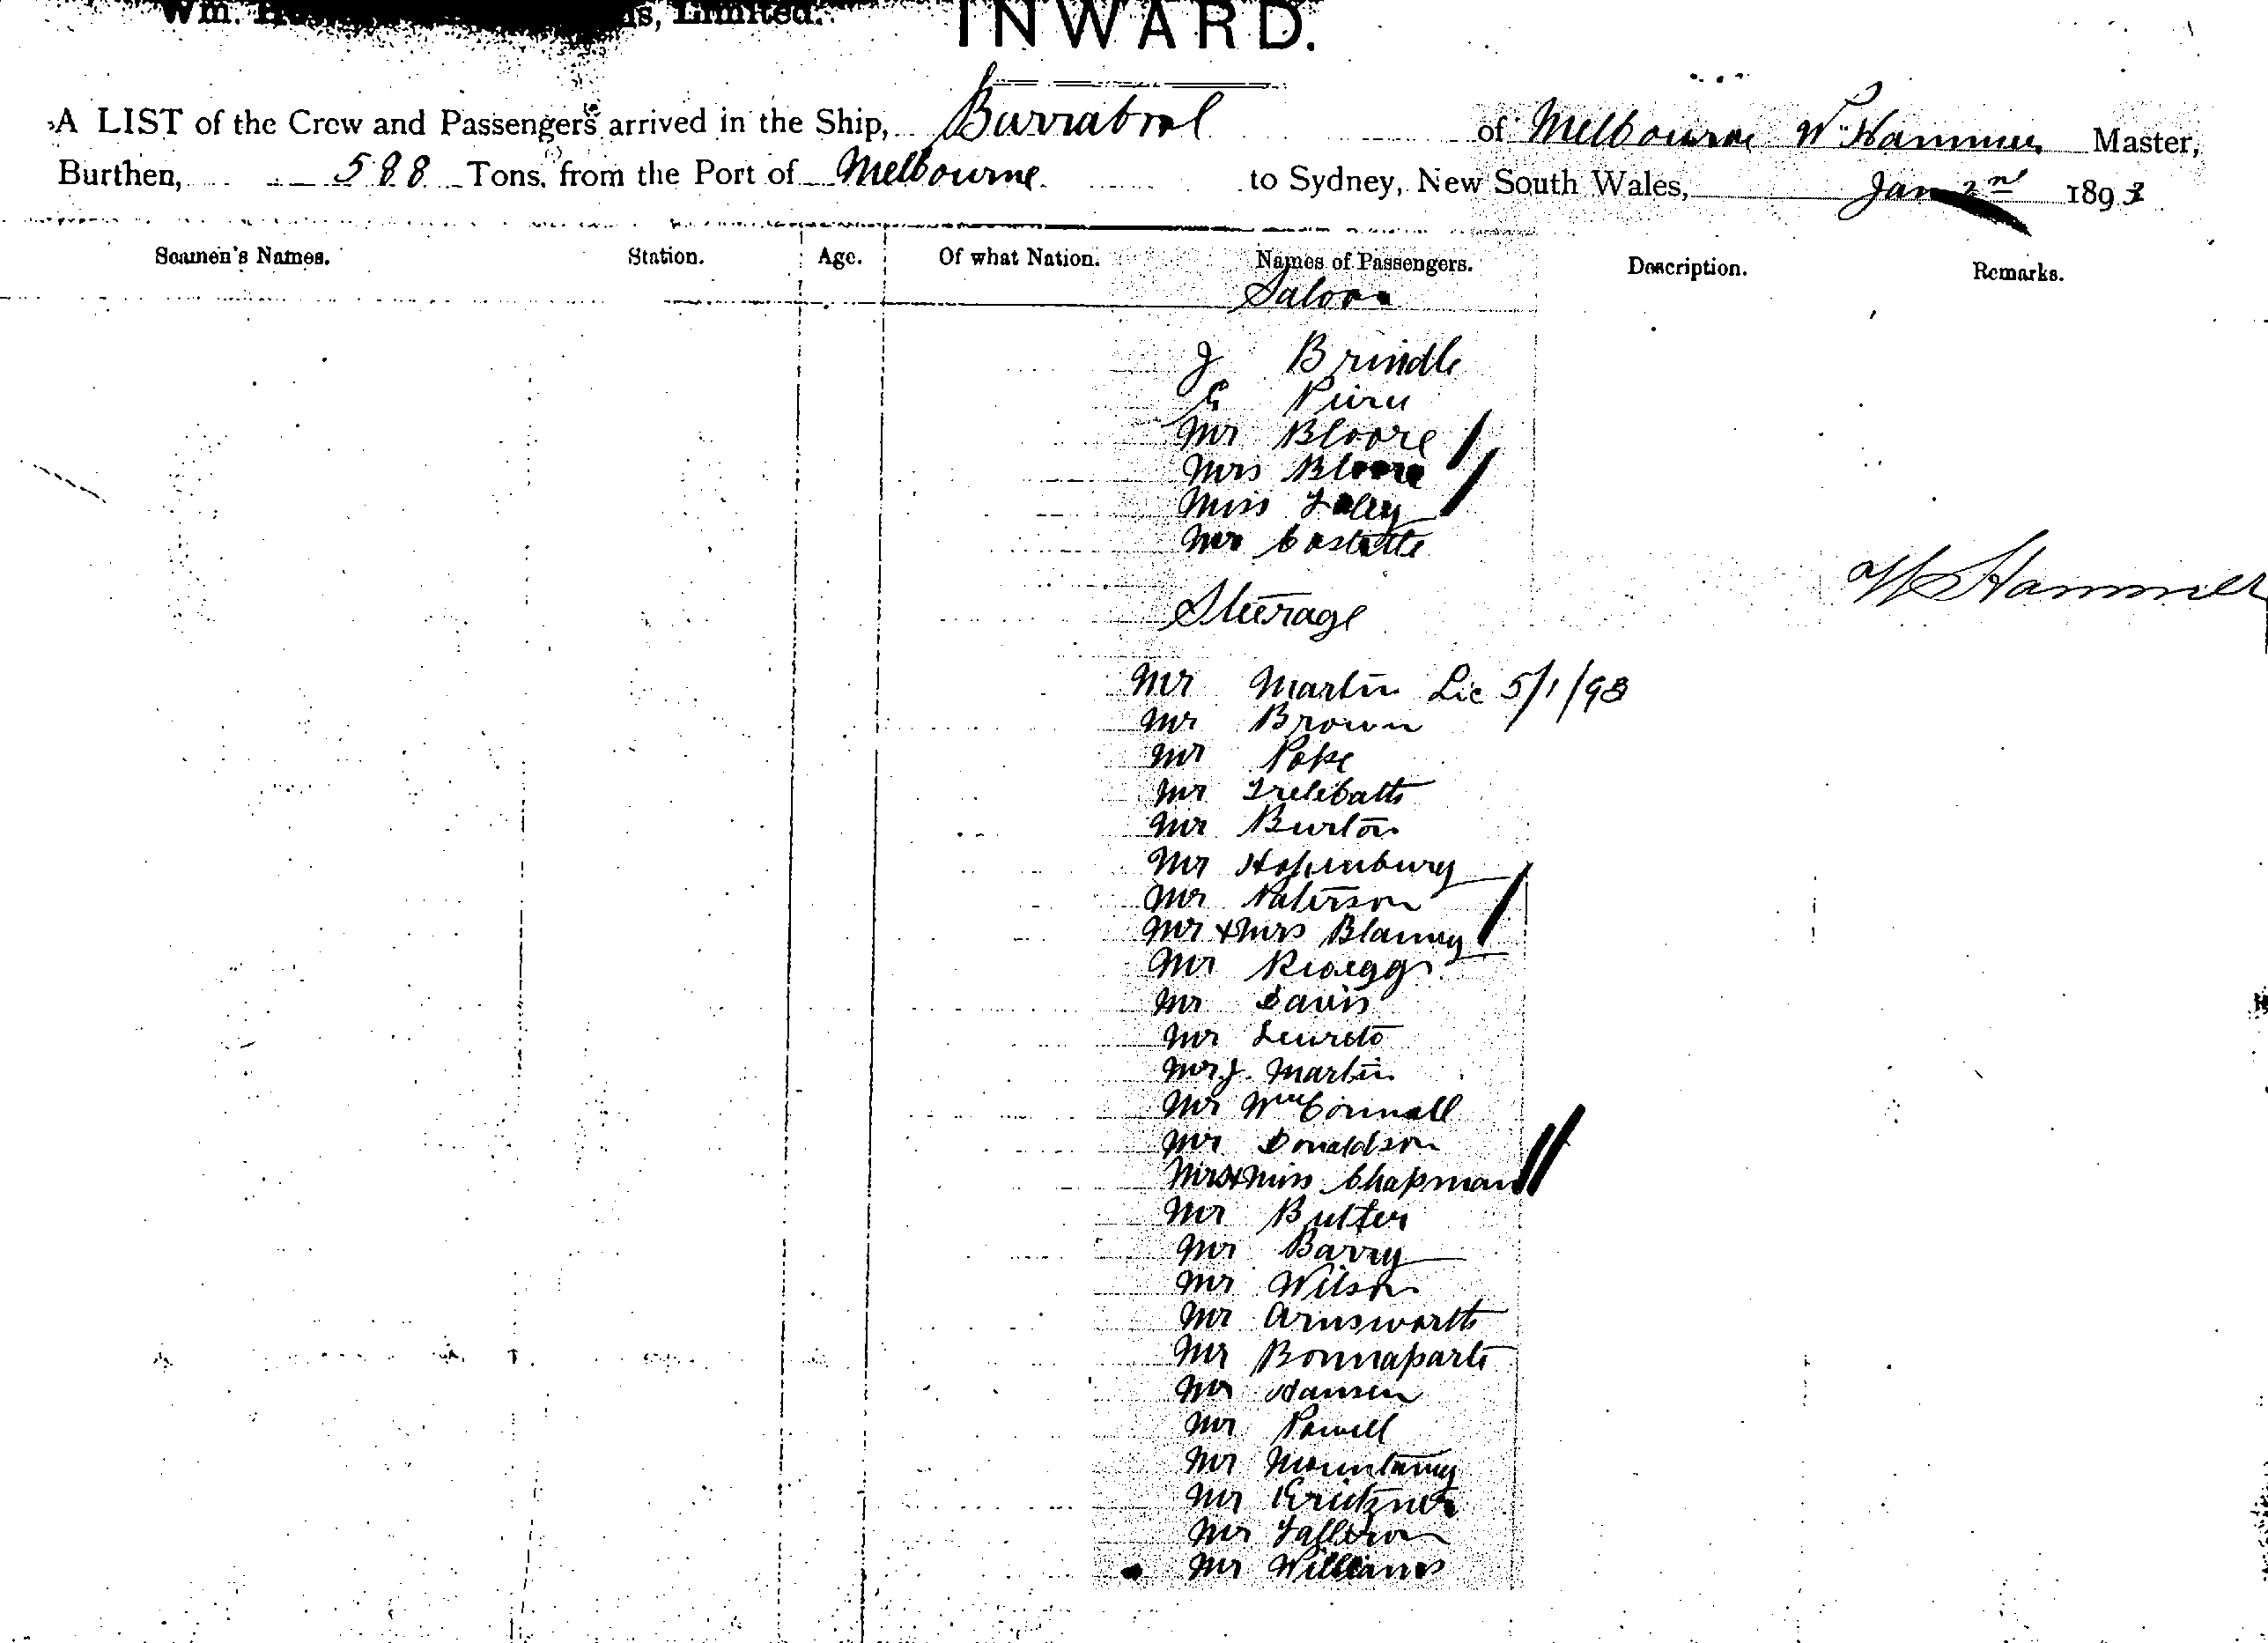 Limited.
INWARD.
A LIST of the Crew and Passengers arrived in the Ship, Burrabool of Melbourne W. Hammer Master,
Burthen, 588 Tons, from the Port of Melbourne to Sydney, New South Wales, Jan 2nd 1893
Seamen's Names. Station. Age. Of what Nation. Names of Passengers. Description. Remarks.
Saloon
J Brindle
Mr Bloore
Mrs Bloore
Miss Foley
Mr
W Hammer
Steerage
Mr Martin Lic 5/1/93
Mr Brown
Mr Pope
Mr
Mr Burton
Mr
Mr Paterson
Mr & Mrs
Mr
Mr Davis
Mr
Mr J. Martin
Mr
Mr Donaldson
Mrs & Miss Chapman
Mr
Mr Barry
Mr Wilson
Mr Arnsworth
Mr Bonnaparte
Mr Hansen
Mr Powell
Mr
Mr
Mr
Mr Williams